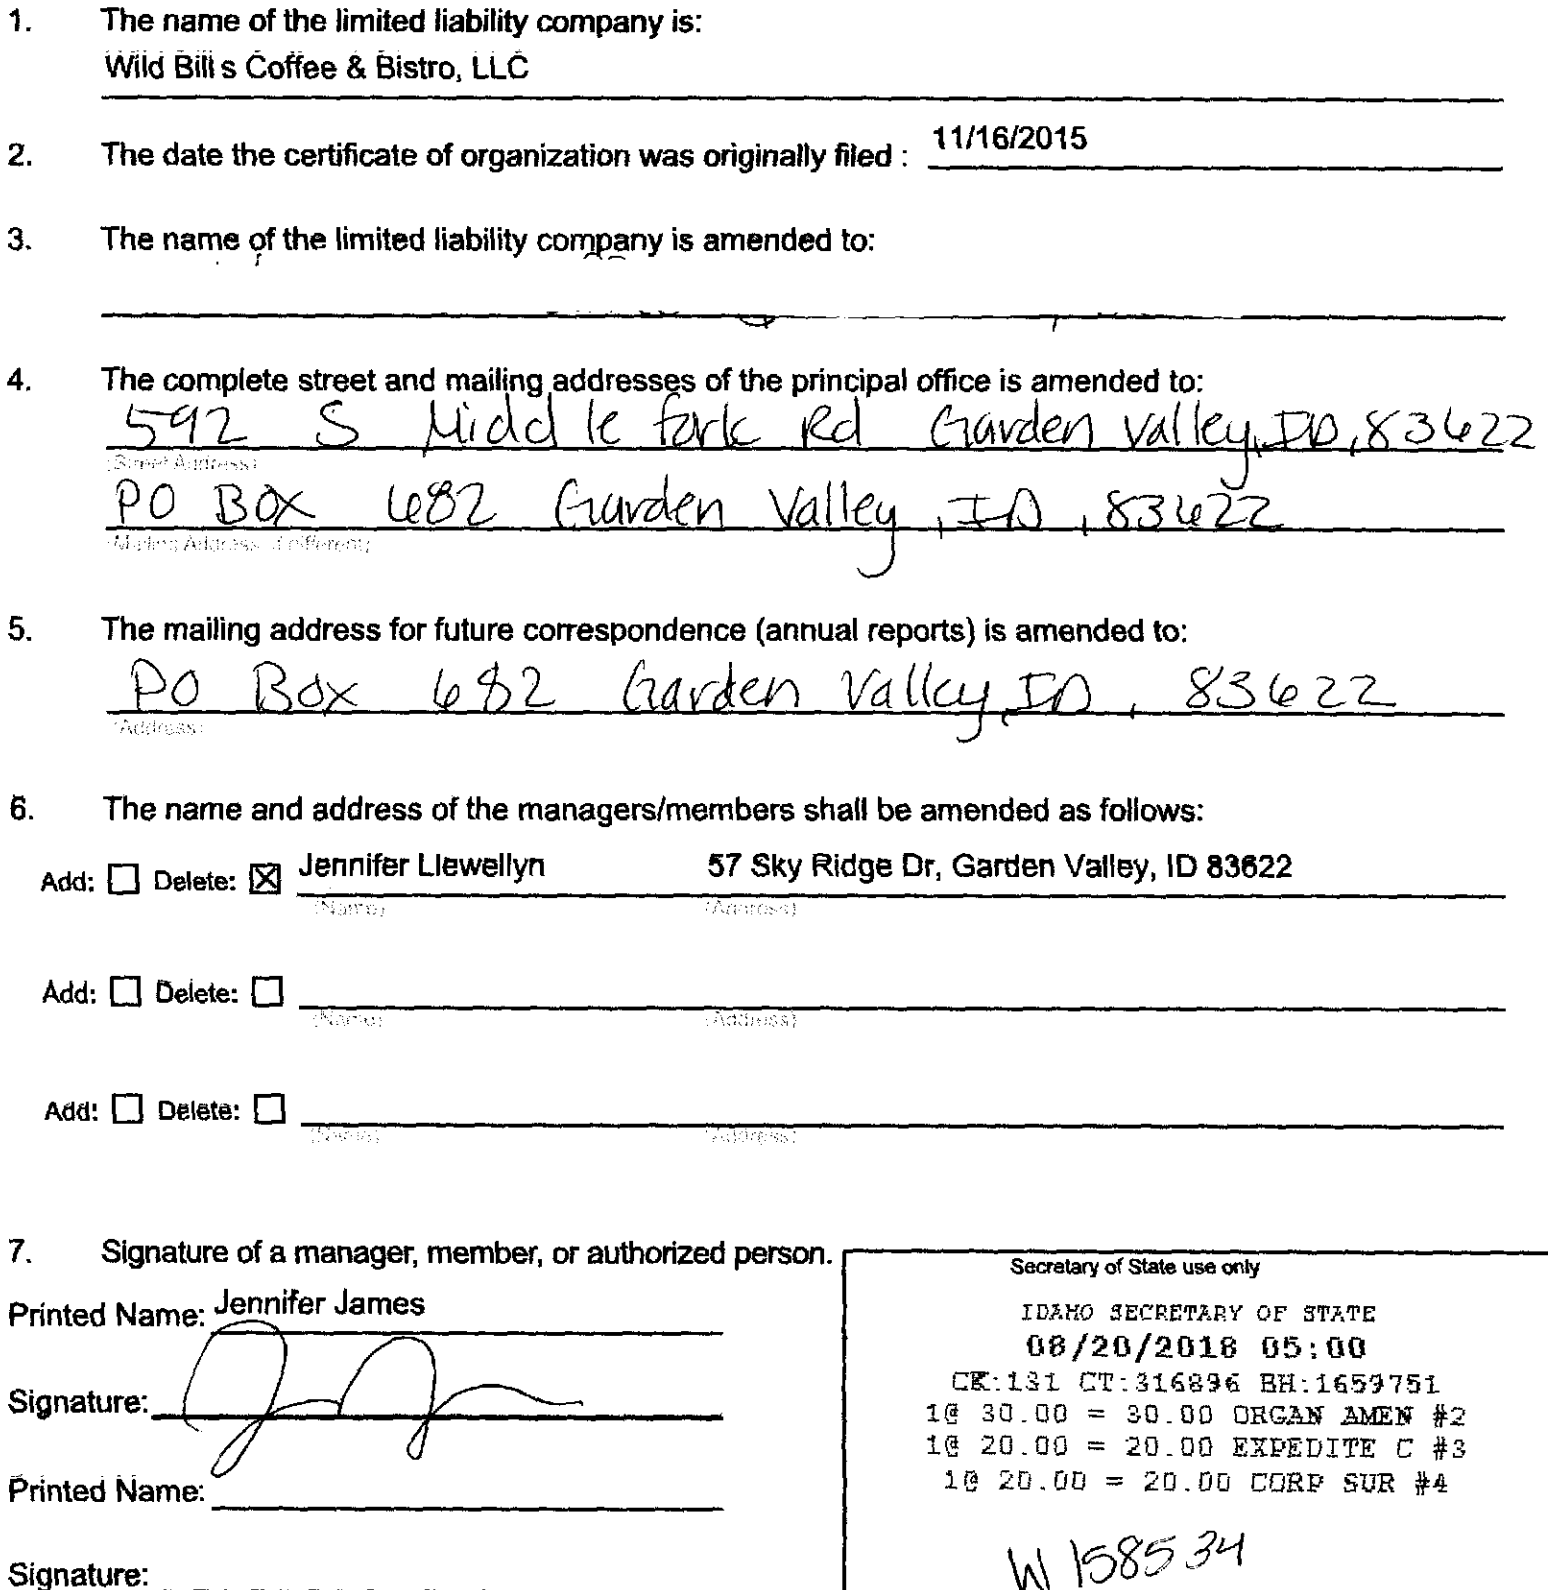 1. The name of the limited liability company is:
Wild Bill s Coffee & Bistro, LLC
2. The date the certificate of organization was originally filed : 11/16/2015
3. The name of the limited liability company is amended to:
4. The complete street and mailing addresses of the principal office is amended to:
592 S Middle fork Rd Garden Valley, ID, 83622
(Street Address)
PO BOX 682 Garden Valley, ID, 83622
(Mailing Address, if different)
5. The mailing address for future correspondence (annual reports) is amended to:
PO Box 682 Garden Valley, ID, 83622
(Address)
6. The name and address of the managers/members shall be amended as follows:
Add: ☐ Delete: ☒ Jennifer Llewellyn 57 Sky Ridge Dr, Garden Valley, ID 83622
(Name) (Address)
Add: ☐ Delete: ☐
(Name) (Address)
Add: ☐ Delete: ☐
(Name) (Address)
7. Signature of a manager, member, or authorized person.
Printed Name: Jennifer James
Signature:
Printed Name:
Signature:
Secretary of State use only
IDAHO SECRETARY OF STATE
08/20/2018 05:00
CK:131 CT:316896 BH:1659751
1@ 30.00 = 30.00 ORGAN AMEN #2
1@ 20.00 = 20.00 EXPEDITE C #3
1@ 20.00 = 20.00 CORP SUR #4
W 158534